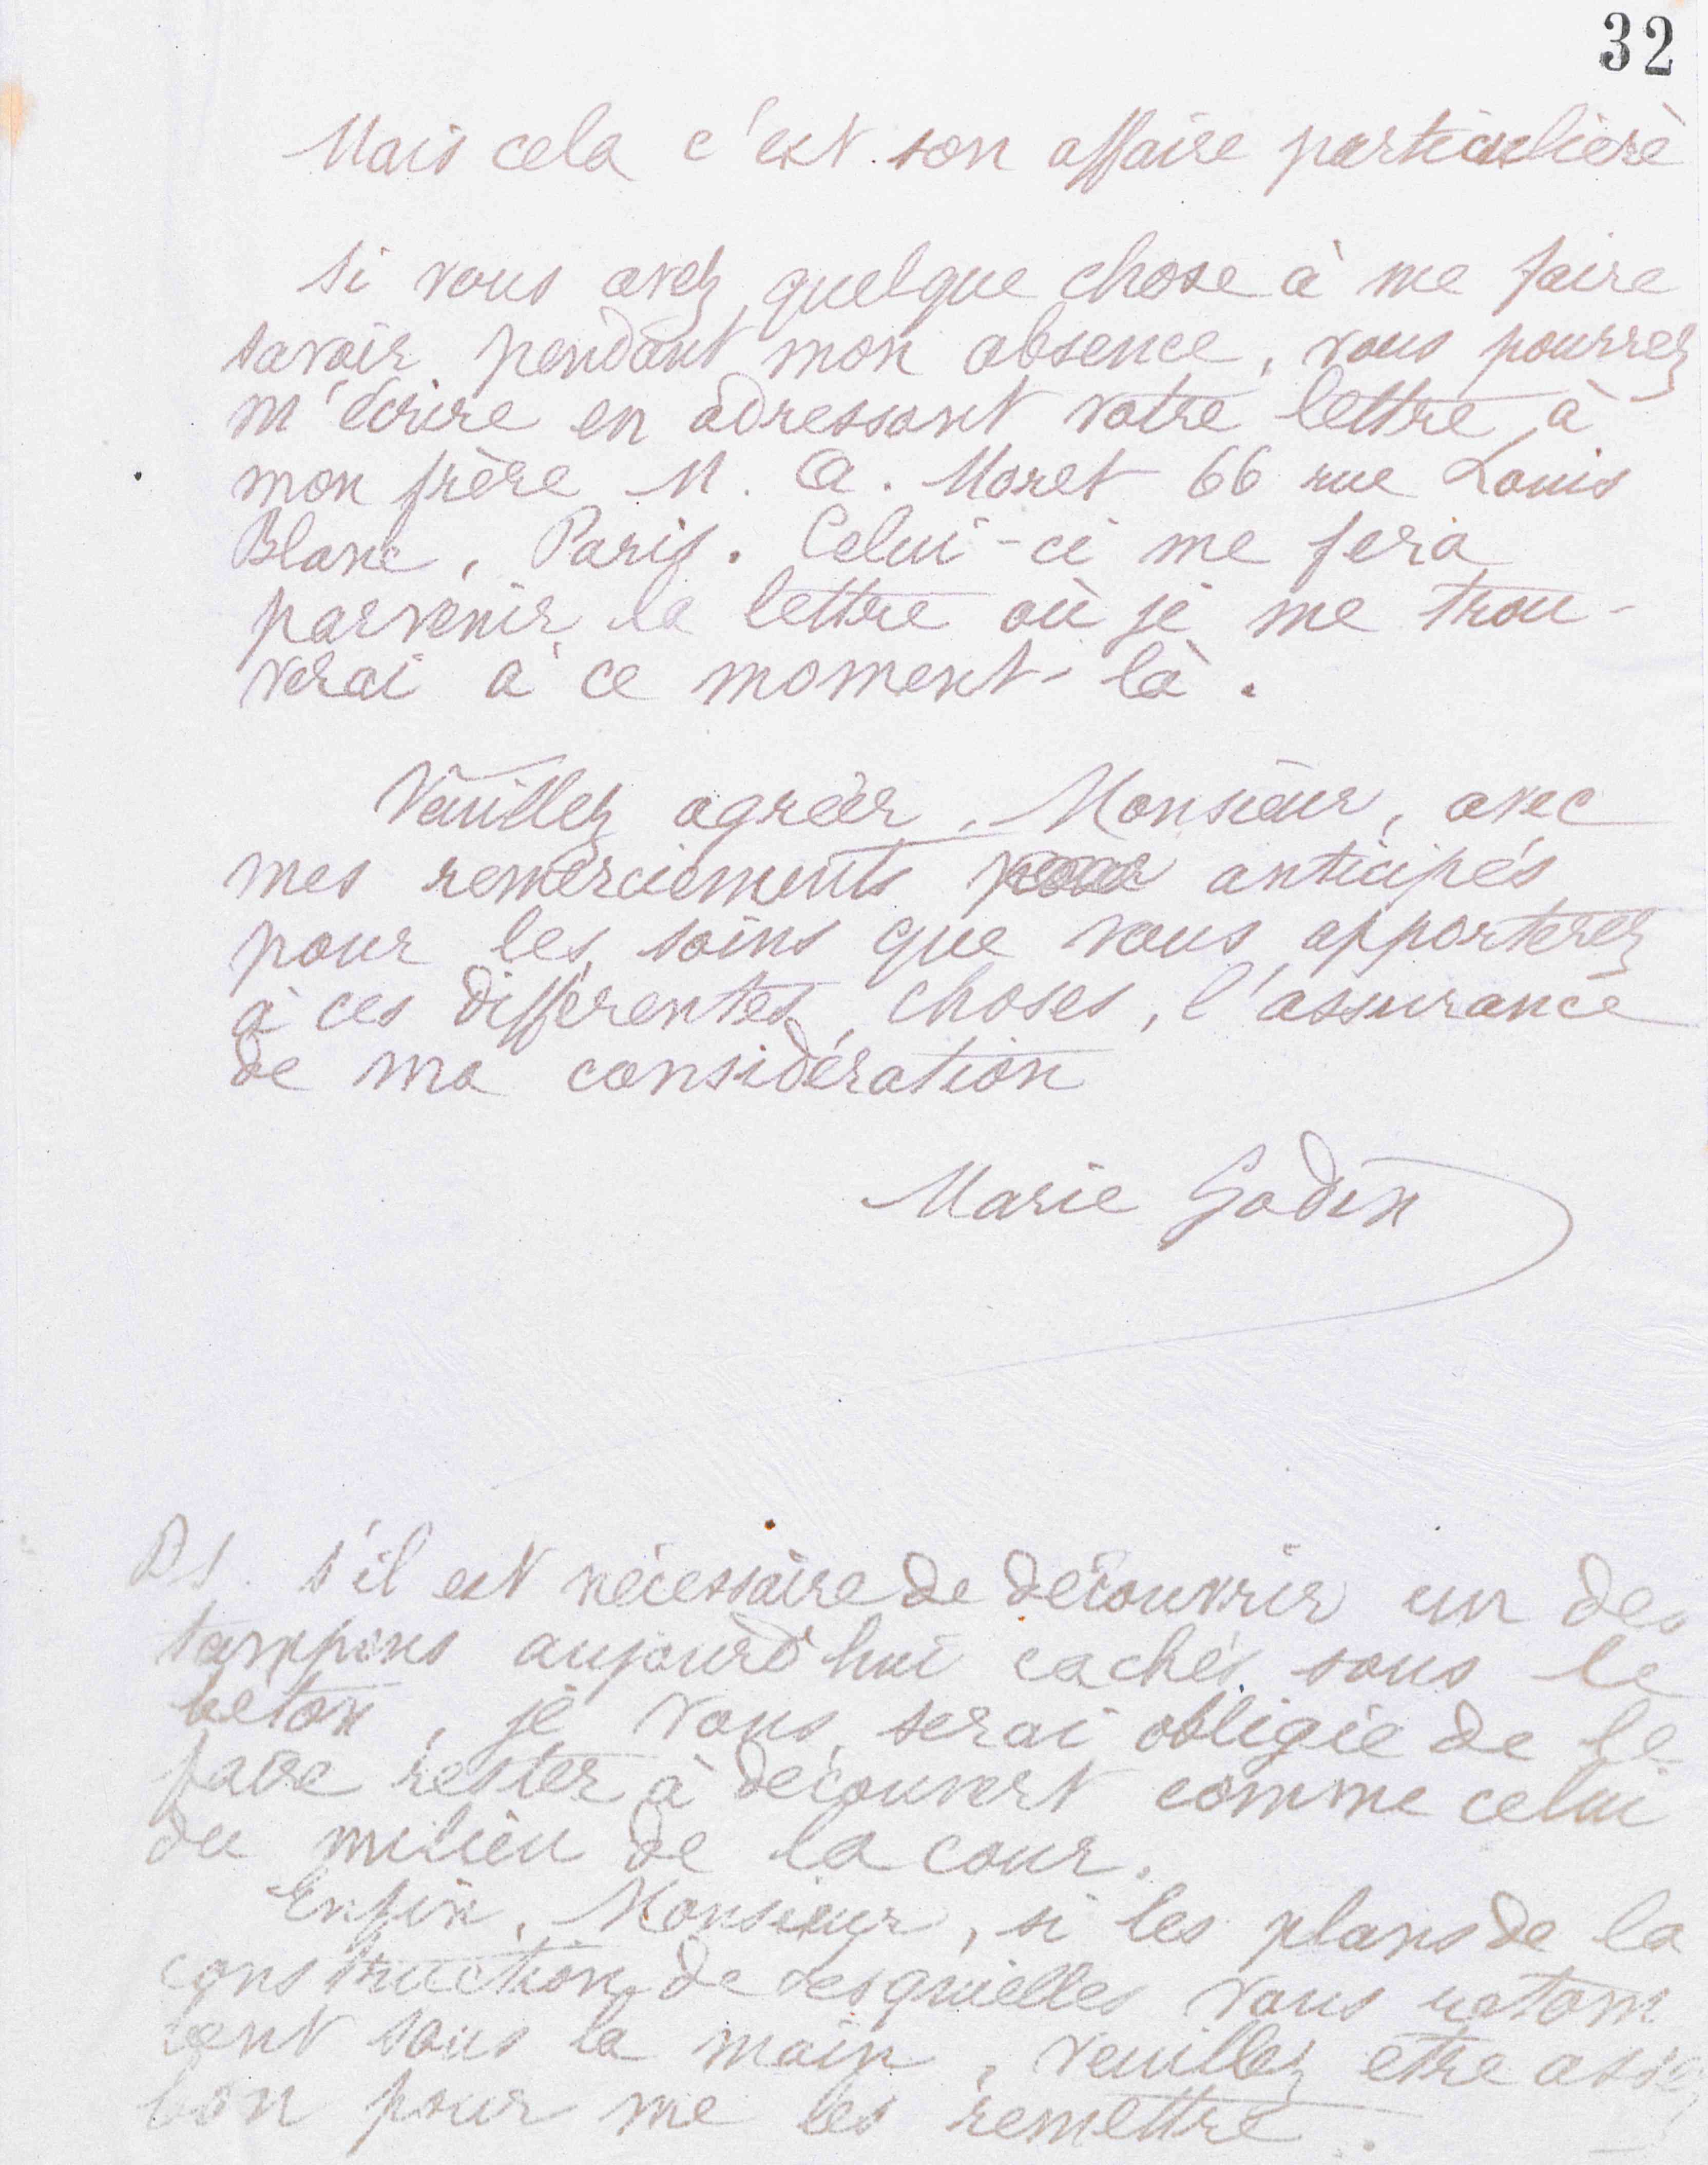 32
Mais cela c'est son affaire particulière
Si vous avez quelque chose à me faire
savoir pendant mon absence, vous pourrez
m'écrire en adressant votre lettre à
mon frère M. A. Moret 66 rue Louis
Blanc, Paris. Celui-ci me fera
parvenir la lettre où je me trou-
verai à ce moment-là.
Veuillez agréer, Monsieur, avec
mes remerciements pour anticipés
pour les soins que vous apporterez
à ces différentes choses, l'assurance
de ma considération
Marie Godin
PS. S'il est nécessaire de découvrir un des
tampons aujourd'hui cachés sous le
béton, je vous serai obligée de le
faire rester à découvert comme celui
du milieu de la cour.
Enfin, Monsieur, si les plans de la
construction de vous
sous la main, veuillez être assez
bon pour me les remettre.